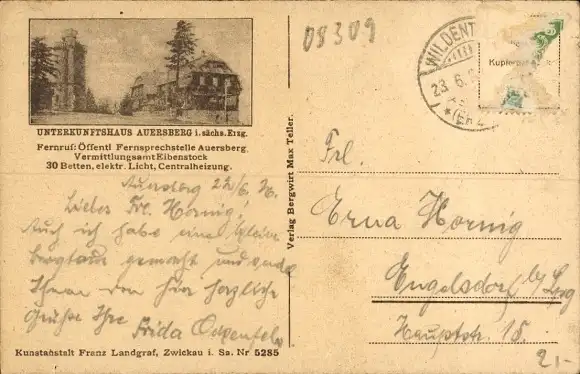 08309
UNTERKUNFTSHAUS AUERSBERG i. sächs. Erzg.
Fernruf: Öffentl Fernsprechstelle Auersberg,
Vermittlungsamt Eibenstock
30 Betten, elektr. Licht, Centralheizung.
Auersberg 22/6.
Liebes Frl. Hornig!
Auch ich habe eine kleine
Bergtour gemacht und sende
Ihnen von hier herzliche
Grüße Ihre Frida
Kunstanstalt Franz Landgraf, Zwickau i. Sa. Nr 5285
Verlag Bergwirt Max Teller.
WILDENT
23.6.
(ERZ
Kupfer
Frl.
Erna Hornig
Engelsdorf b/Lpzg
Hauptstr. 18.
21-